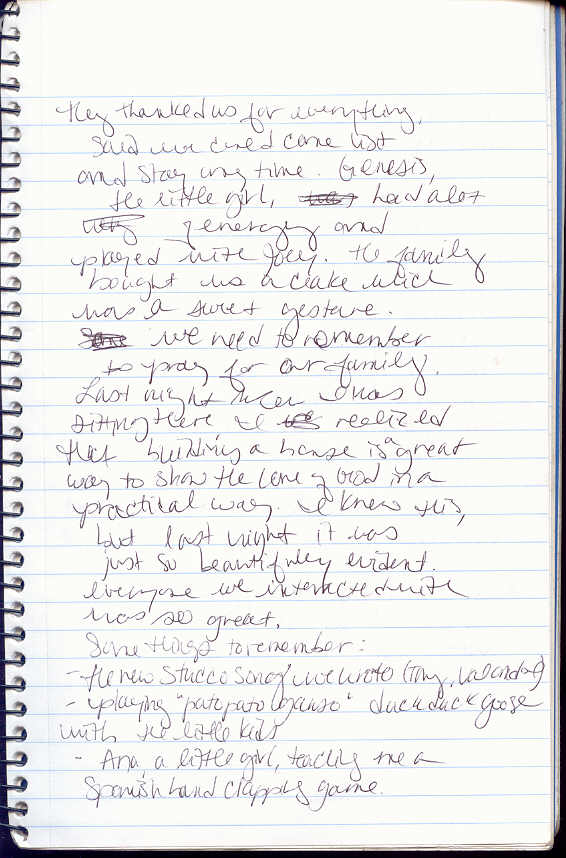 They thanked us for everything,
said we could come visit
and stay any time. Genesis,
the little girl, had alot
of energy and
played with Joey. The family
bought us a cake which
was a sweet gesture.
we need to remember
to pray for our family.
Last night when I was
sitting there I realized
that building a house is a great
way to show the love of God in a
practical way. I knew this,
but last night it was
just so beautifully evident.
Everyone we interacted with
was so great.
Some things to remember:
- the new stucco song we wrote (Tiny,
- playing "pato pato ganso" duck duck goose
with the little kids
- Ana, a little girl, teaching me a
Spanish hand clapping game.